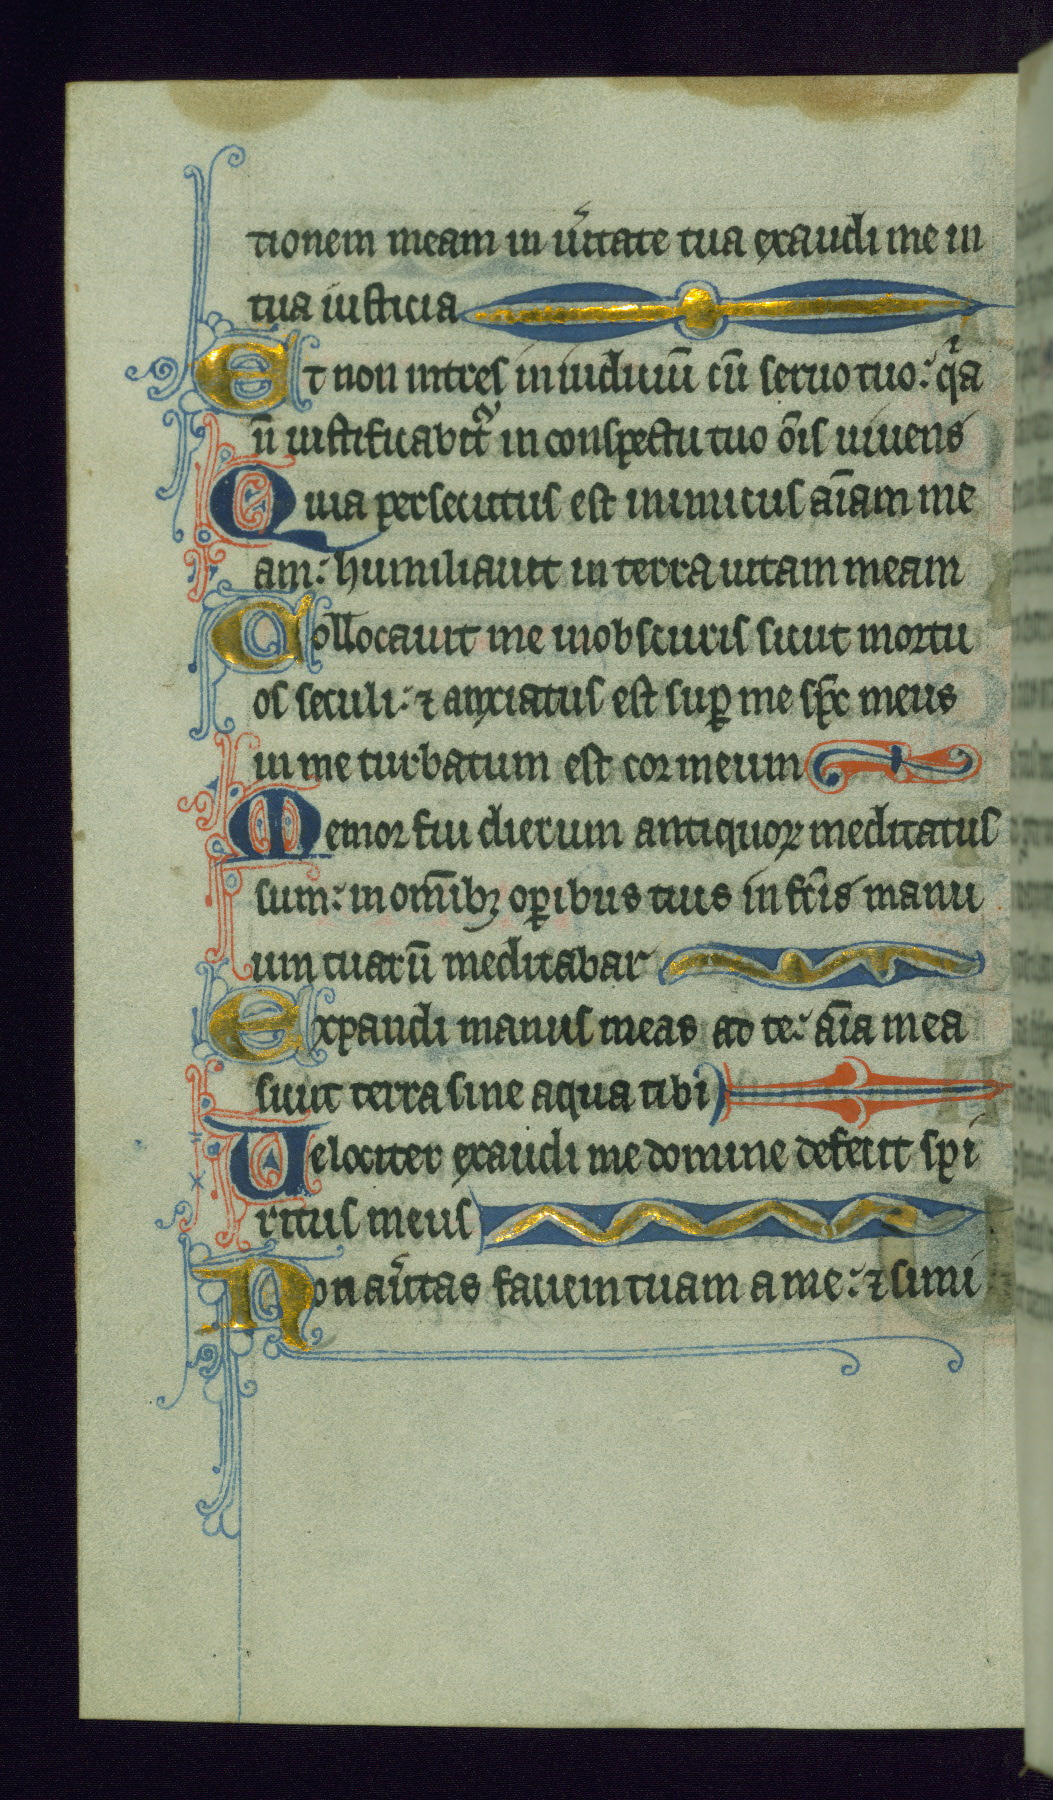 tionem meam in u͛itate tua exaudi me in
tua iusticia
Et non intres in iudiciū cū seruo tuo: qͥa
n̄ iustificabit᷑ in conspectu tuo ōis uiuens
Quia persecutus est inimicus aīam me
am: humiliauit in terra uitam meam
Collocauit me inobscuris sicut mortu
os seculi: ⁊ anxiatus est suꝑ me sp̄c meus
in me turbatum est cor meum
Memor fui dierum antiquoꝝ meditatus
sum: in om̄ibꝫ oꝑibus tuis in fc̄is manu
um tuarū meditabar
Expandi manus meas ad te: aīa mea
sicut terra sine aqua tibi
Uelociter exaudi me domine defecit spi
ritus meus
Non au͛tas faciem tuam a me: ⁊ simi